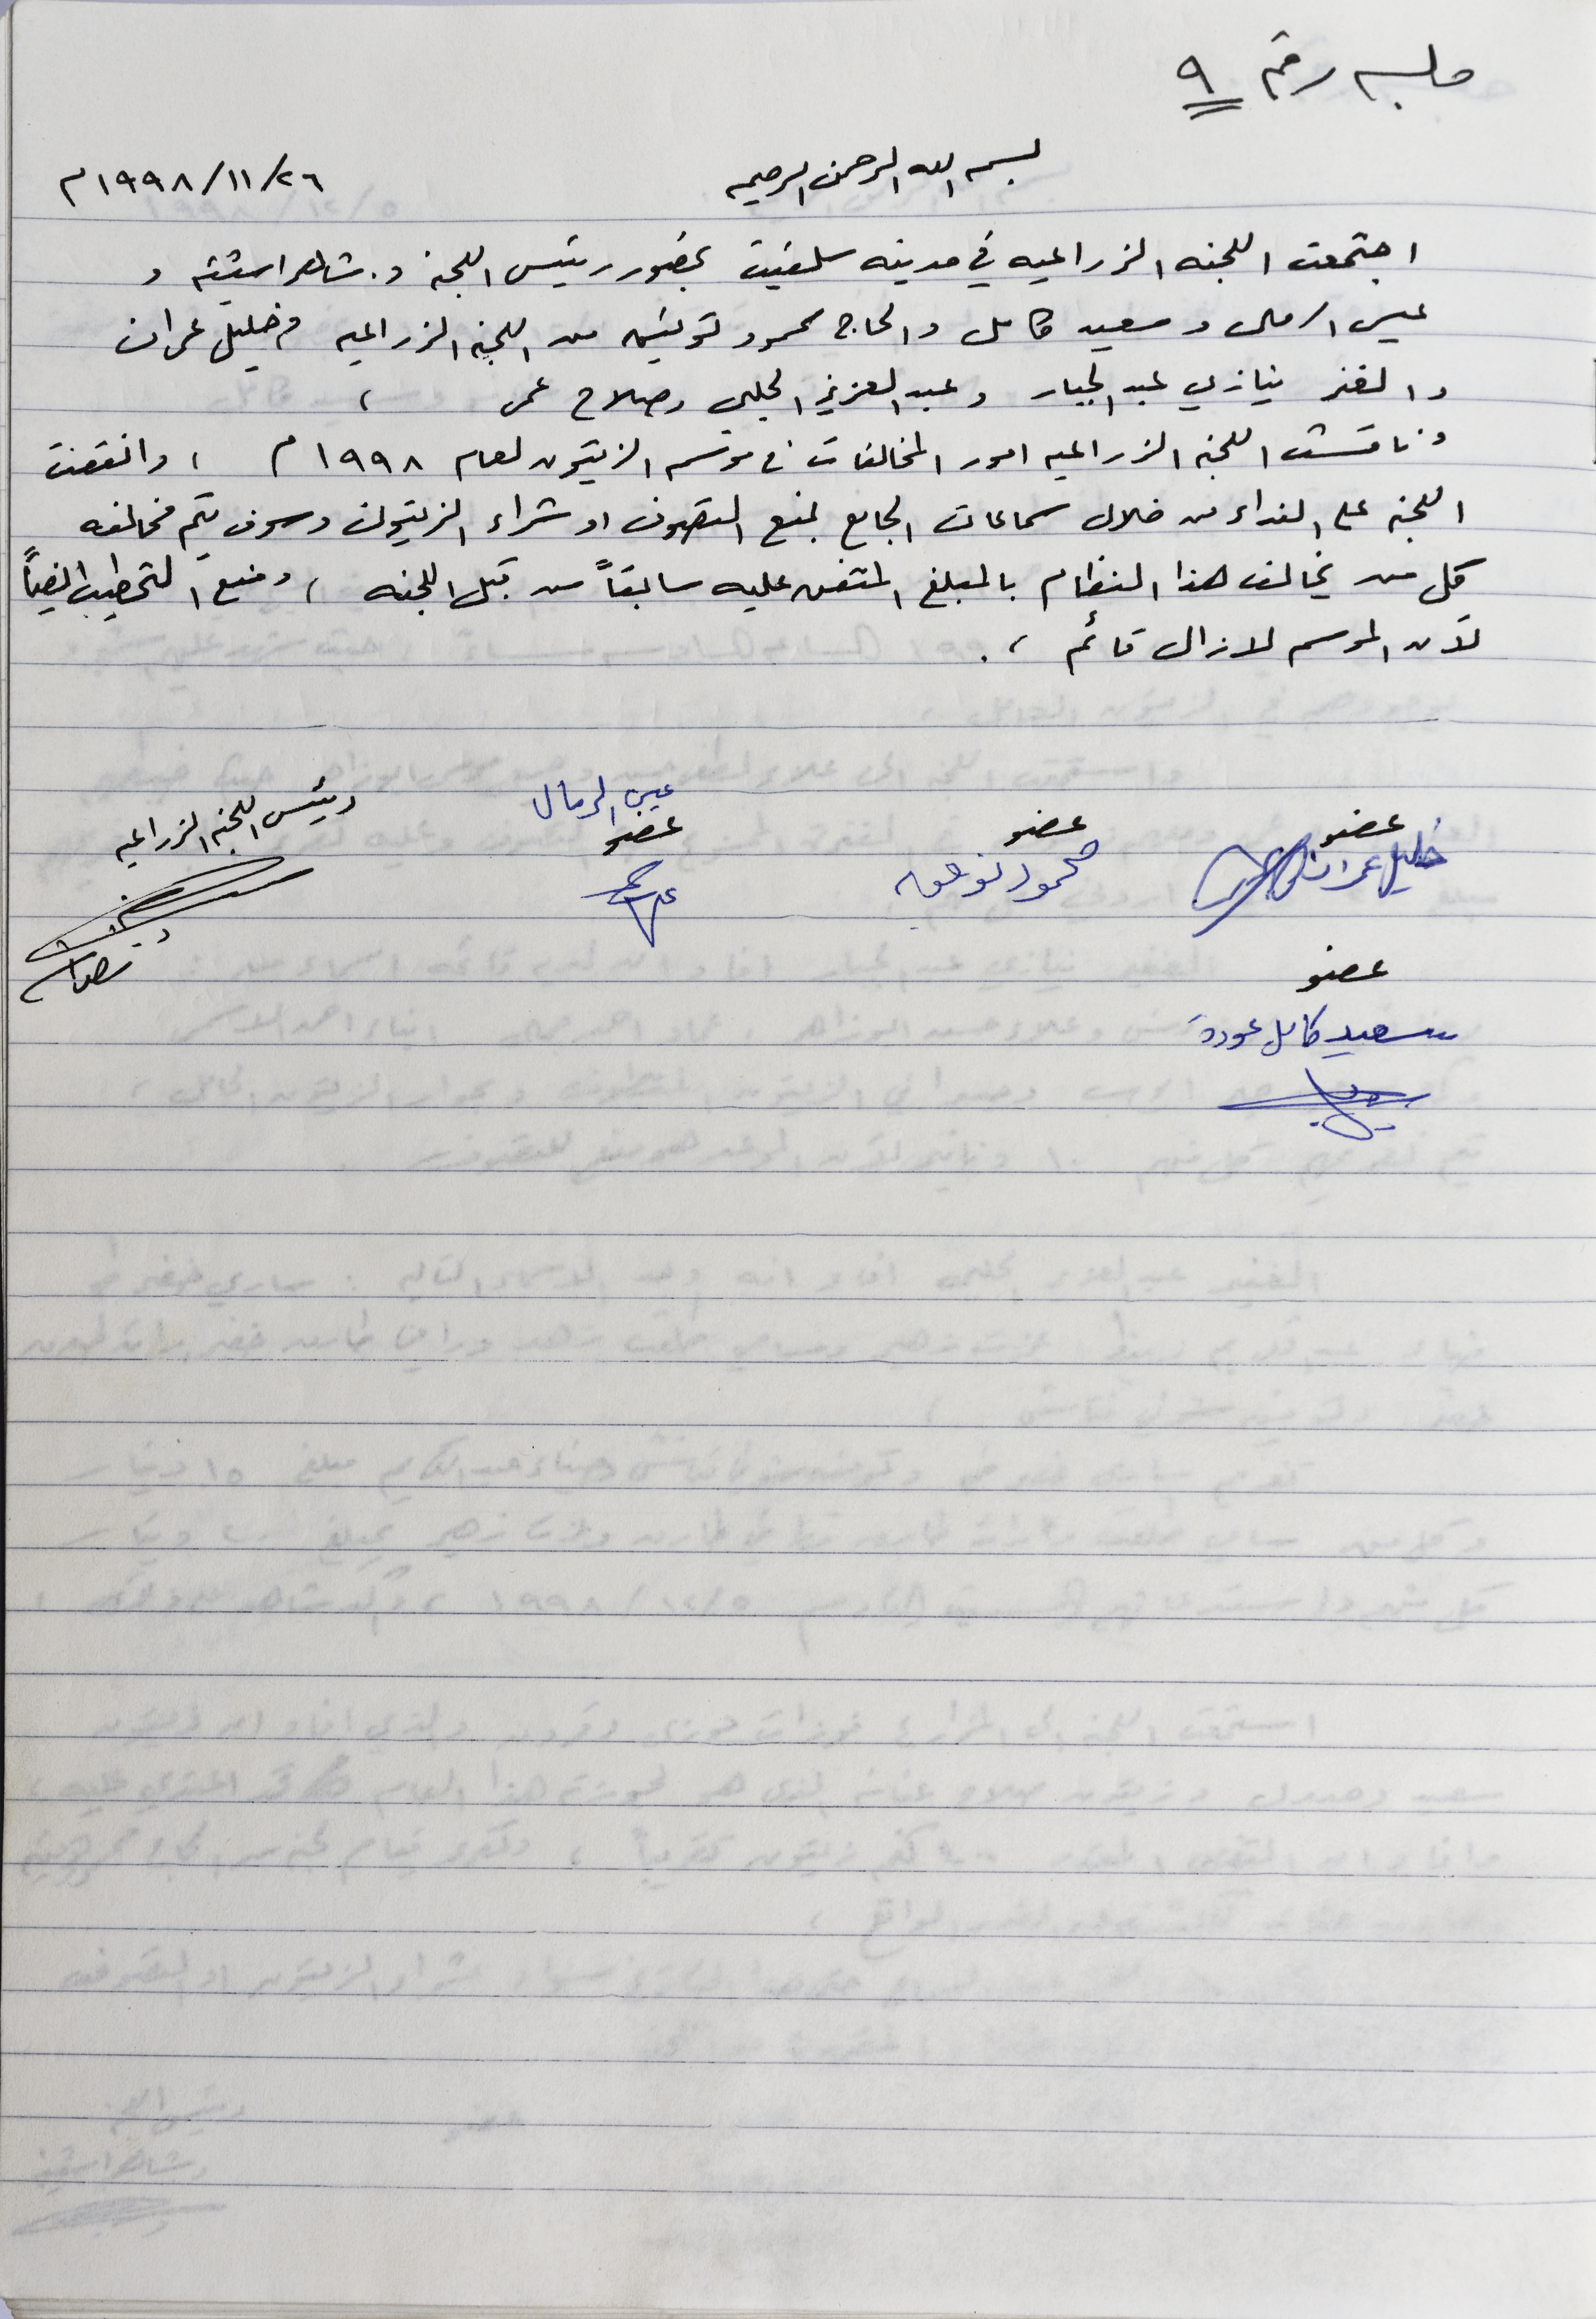 جلسه رقم ٩
بسم الله الرحمن الرحيم
٢٦/١١/١٩٩٨م
اجتمعت اللجنه الزراعيه في مدينه سلفيت بحضور رئيس اللجنة د. شاهر اشتيه و
عيسى الرمال وسعيد كامل والحاج محمود من اللجنه الزراعيه م خليل عمران
والغفر نيازي عبد الجبار وعبد العزيز الحلبي وصلاح عمر ،
وناقشت اللجنه الزراعيه امور المخالفات في موسم الزيتون لعام ١٩٩٨م ، واتفقت
اللجنه على النداء من خلال سماعات الجامع لمنع التصيون او شراء الزيتون وسوف يتم مخالفه
كل من يخالف هذا النظام بالمبلغ المتفق عليه سابقاً من قبل اللجنه ، ومنع التحطيب ايضاً
لأن الموسم لازال قائم ، .
عضو
خليل عمران
عضو
محمود
عيسى الرمال
عضو
رئيس اللجنه الزراعيه
عضو
سعيد كامل عودة